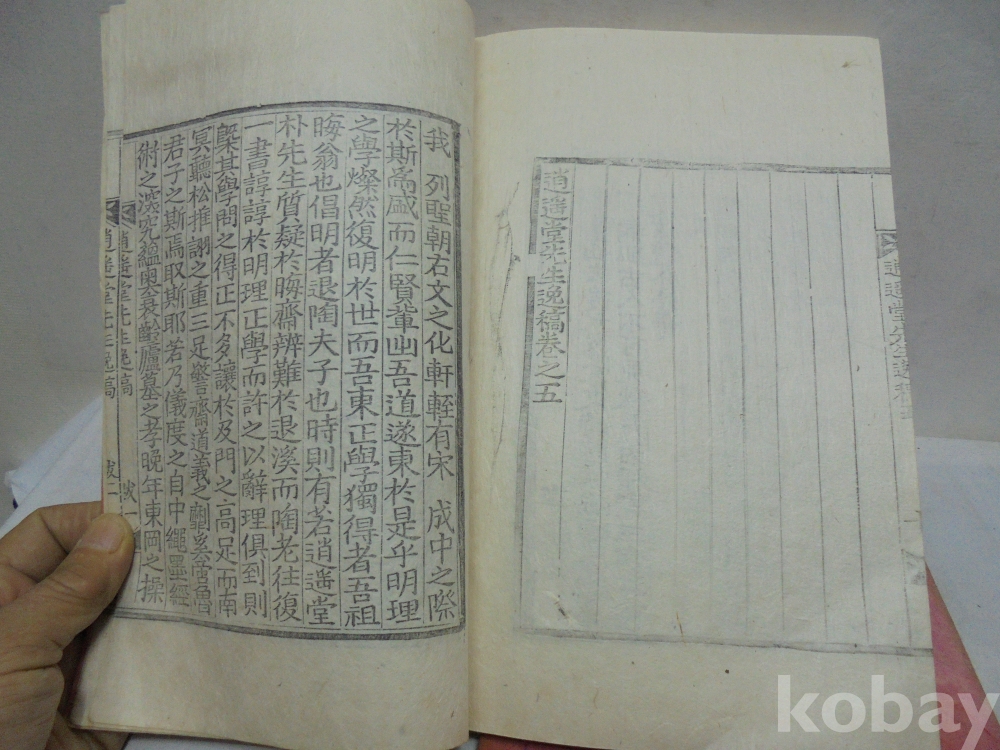 逍遥堂先生逸稿卷之五
我 列聖朝右文之化軒輊有宋 成中之際
於斯爲盛而仁賢輩出吾道遂東於是乎明理
之學燦然復明於世而吾東正學獨得者吾祖
晦翁也倡明者退陶夫子也時則有若逍遥堂
朴先生質疑於晦齋辨難於退溪而陶老往復
一書諄諄於明理正學而許之以辭理俱到則
槩其學問之得正不多讓於及門之高足而南
冥聽松推詡之重三足警齋道義之劘奚啻魯
君子之斯焉取斯耶若乃儀度之自中繩墨經
術之深究蘊奥衰齡廬墓之孝晚年東岡之操
逍遥堂先生逸稿
跋一
逍遥堂先生逸稿
跋二
kobay